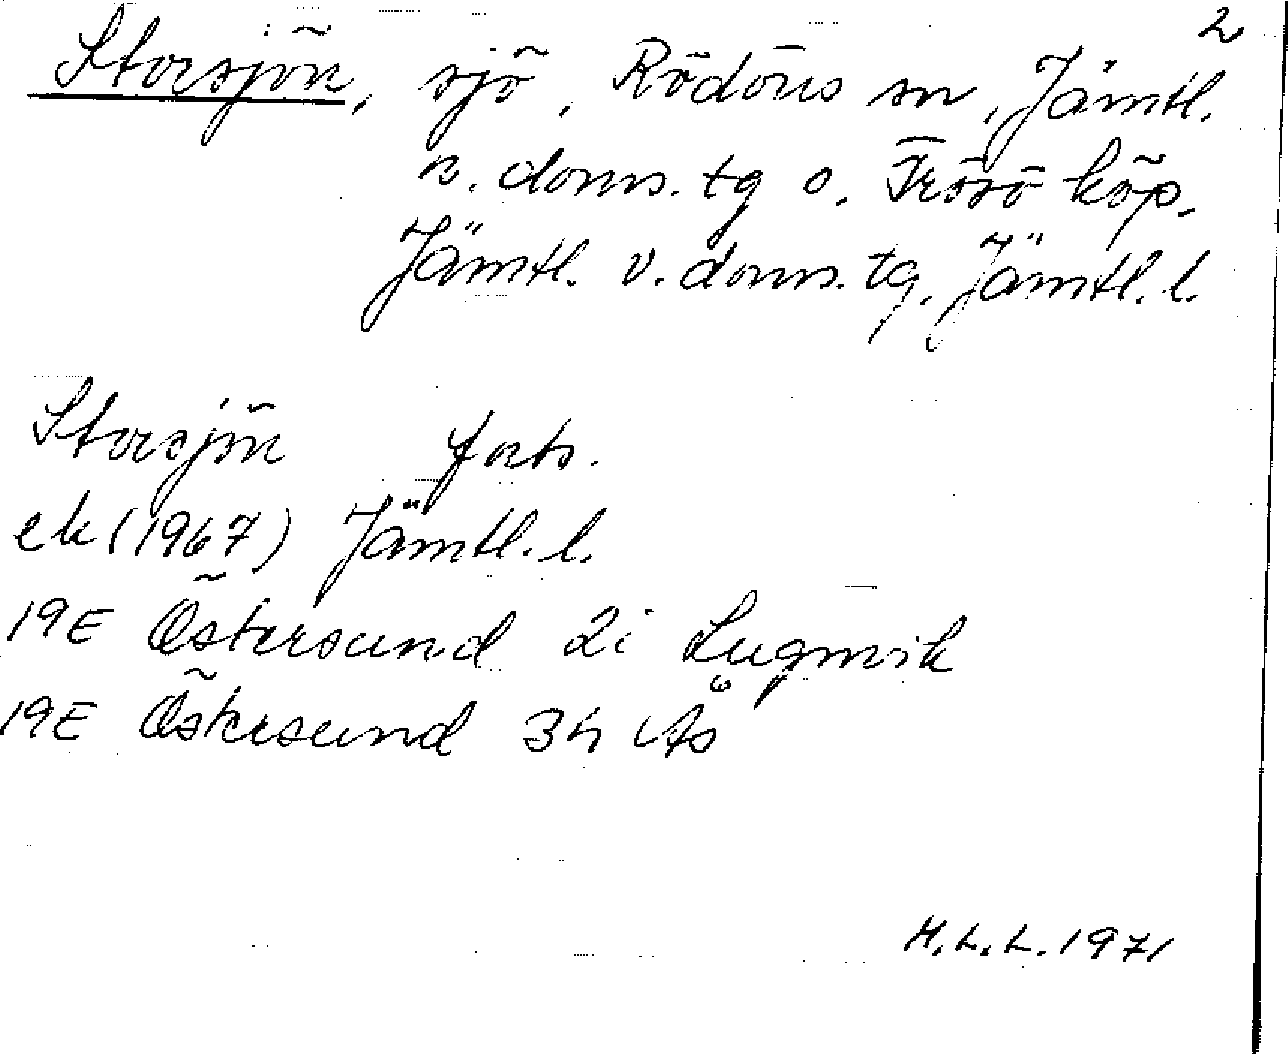 2
Storsjön, sjö, Rödöns sn, Jämtl.
n. doms. tg o. Frösö köp.
Jämtl. v. doms. tg, Jämtl. l.
Storsjön forts.
ek (1967) Jämtl. l.
19E Östersund 2i Lugnvik
19E Östersund 3h Ås
H.L.L. 1971